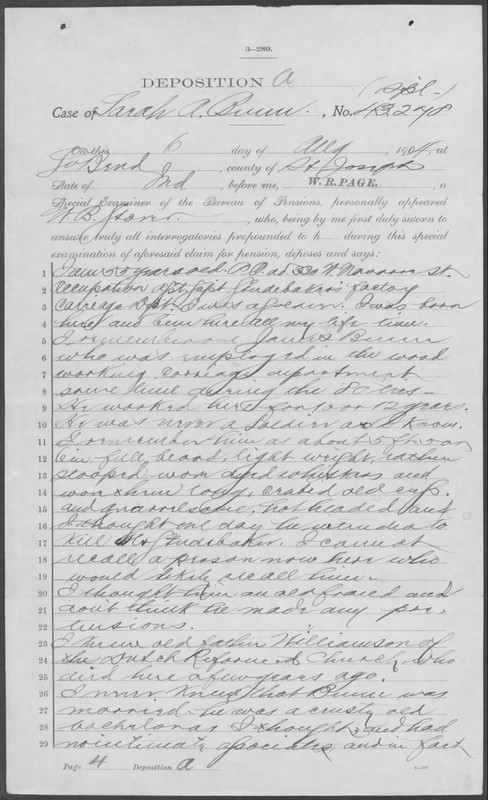 3—289.
DEPOSITION A
(Spl.)
Case of Sarah A. Bunn, No. 43,278
On this 6 day of Aug, 1904, at
So Bend, county of St Joseph
State of Ind, before me, W. R. PAGE, a
Special Examiner of the Bureau of Pensions, personally appeared
W. B. Stover, who, being by me first duly sworn to
answer truly all interrogatories propounded to h during this special
examination of aforesaid claim for pension, deposes and says:
1 I am 55 years old. P.O. ad W. Navarre St.
2 Occupation Supt Studebakers factory
3 Carriage Dept. I was a soldier. I was born
4 here and been here all my life time.
5 I remember one James Bunn
6 who was employed in the wood
7 working carriage department
8 some time during the 80 ens—
9 He worked here for 10 or 12 years.
10 He was never a soldier as I know.
11 I remember him as about 5 ft 5 or
12 6 in full beard, light weight, rather
13 stooped, wore and whiskers and
14 wore them long, crabed old cuss,
15 and quarrelsome, hot headed and
16 I thought one day he intended to
17 kill Mr Studebaker. I cannot
18 recall a person now here who
19 would likely recall him.
20 I thought him an old and
21 don't think he made any pre-
22 tensions.
23 I knew old father Williamson of
24 the Dutch Reformed Church, who
25 died here a few years ago.
26 I never knew that Bunn was
27 married—he was a crusty old
28 bachelor as I thought, and had
29 no intimate associates and in fact
Page 4 Deposition A